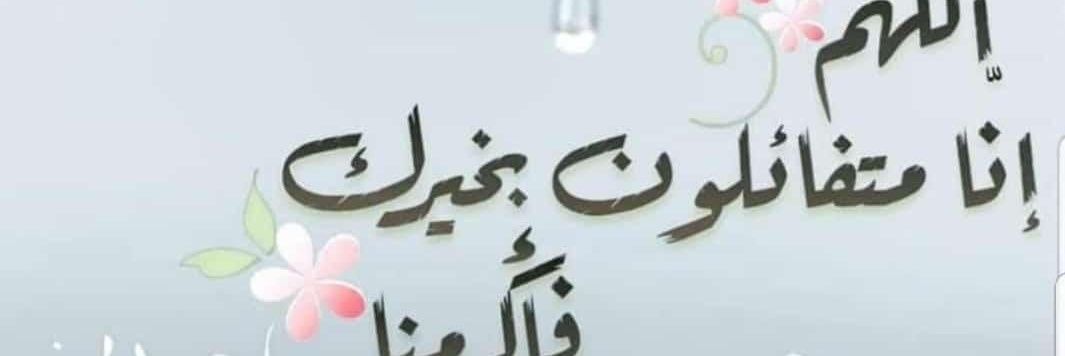 اللهم
إنّا متفائلون بخيرك
فأكرمنا